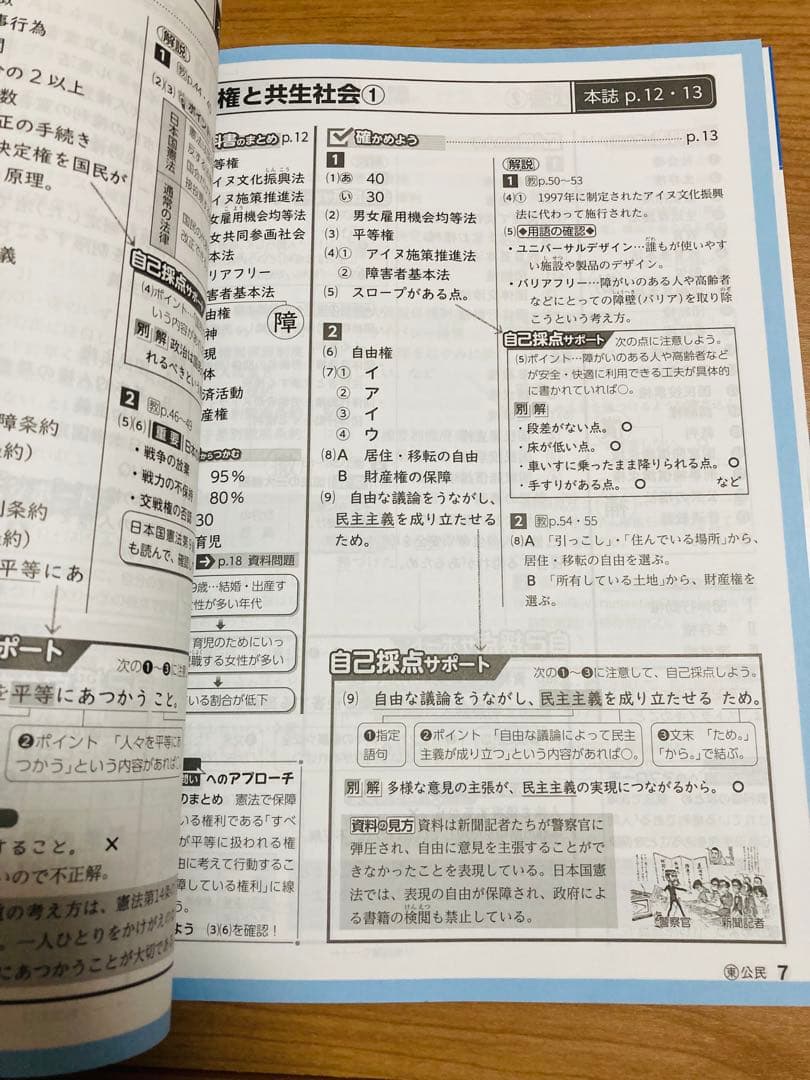 事行為
分の２以上
数
正の手続き
決定権を国民が
原理。
義
障条約
約）
別条約
約）
平等にあ
解説
1 教p.44
(2)(3)
日本国憲法
通常の法律
自己採点サポート
(4)ポイント…
いう内容が
別解 政治は
れるべきとい
2 教p.46～49
(5)(6) 重要 日本
・戦争の放棄
・戦力の不保持
・交戦権の否認
日本国憲法第
も読んで、確認
ポート
次の❶～❸に注意
を平等にあつかうこと。
❷ポイント 「人々を平等にあ
つかう」という内容があれば○。
すること。 ×
いので不正解。
の考え方は、憲法第14条
。一人ひとりをかけがえの
にあつかうことが大切である
権と共生社会①
本誌 p.12・13
科書のまとめ p.12
等権
アイヌ文化振興法
イヌ施策推進法
女雇用機会均等法
女共同参画社会
本法
リアフリー
害者基本法
由権
神
現
体
済活動
産権
障
からつかむ
95%
80%
30
育児
p.18 資料問題
9歳…結婚・出産す
性が多い年代
育児のためにいっ
職する女性が多い
いる割合が低下
へのアプローチ
のまとめ 憲法で保障
いる権利である「すべ
が平等に扱われる権
由に考えて行動するこ
障している権利」に線
う。
よう (3)(6)を確認！
確かめよう p.13
1
(1)あ 40
い 30
(2) 男女雇用機会均等法
(3) 平等権
(4)① アイヌ施策推進法
② 障害者基本法
(5) スロープがある点。
2
(6) 自由権
(7)① イ
② ア
③ イ
④ ウ
(8)A 居住・移転の自由
B 財産権の保障
(9) 自由な議論をうながし、
民主主義を成り立たせる
ため。
解説
1 教p.50～53
(4)① 1997年に制定されたアイヌ文化振興
法に代わって施行された。
(5)◆用語の確認◆
・ユニバーサルデザイン…誰もが使いやす
い施設や製品のデザイン。
・バリアフリー…障がいのある人や高齢者
などにとっての障壁(バリア)を取り除
こうという考え方。
自己採点サポート 次の点に注意しよう。
(5)ポイント…障がいのある人や高齢者など
が安全・快適に利用できる工夫が具体的
に書かれていれば○。
別解
・段差がない点。 ○
・床が低い点。 ○
・車いすに乗ったまま降りられる点。 ○
・手すりがある点。 ○ など
2 教p.54・55
(8)A 「引っこし」・「住んでいる場所」から、
居住・移転の自由を選ぶ。
B 「所有している土地」から、財産権を
選ぶ。
自己採点サポート 次の❶～❸に注意して、自己採点しよう。
(9) 自由な議論をうながし、民主主義を成り立たせる ため。
❶指定
語句
❷ポイント 「自由な議論によって民主
主義が成り立つ」という内容があれば○。
❸文末 「ため。」
「から。」で結ぶ。
別解 多様な意見の主張が、民主主義の実現につながるから。 ○
資料の見方 資料は新聞記者たちが警察官に
弾圧され、自由に意見を主張することが
できなかったことを表現している。日本国憲
法では、表現の自由が保障され、政府によ
る書籍の検閲も禁止している。
警察官 新聞記者
東公民 7